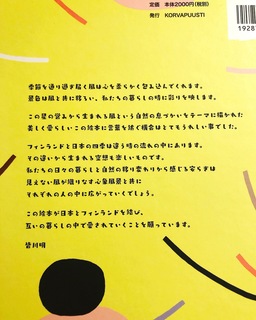 定価 本体2000円(税別)
発行 KORVAPUUSTI
1928
季節を通り過ぎ届く風は心を柔らかく包み込んでくれます。
景色は風と共に移ろい、私たちの暮らしの時に彩りを映します。
この星の営みから生まれる風という自然の息づかいをテーマに描かれた
美しく愛らしいこの絵本に言葉を紡ぐ機会はとてもうれしい事でした。
フィンランドと日本の四季は違う時の流れの中にあります。
その違いから生まれる空想も楽しいものです。
私たちの日々の暮らしと自然の移り変わりから感じる安らぎは
見えない風が織りなす心象風景と共に
それぞれの人の中に広がっていくでしょう。
この絵本が日本とフィンランドを結び、
互いの暮らしの中で愛されていくことを願っています。
皆川明